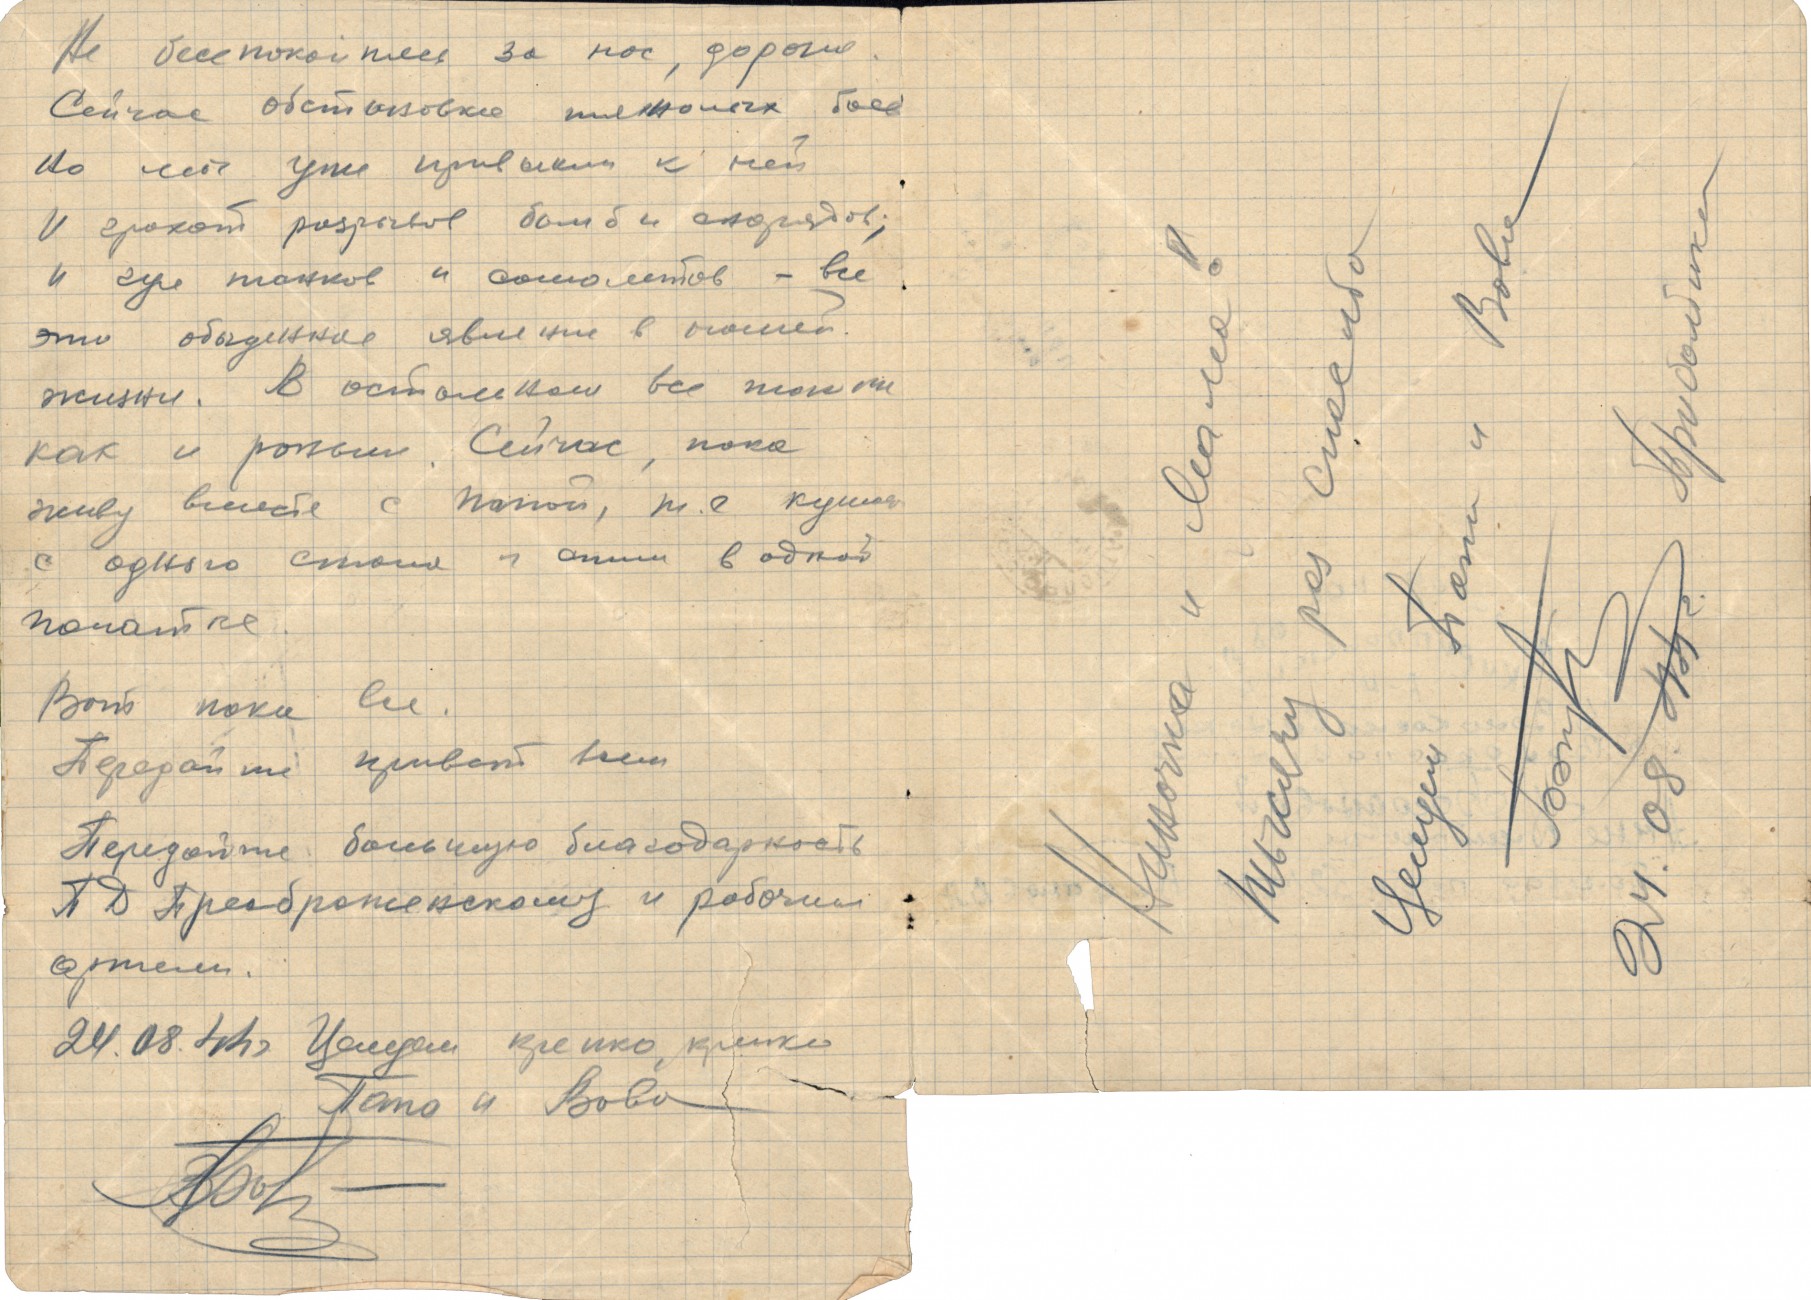 Не беспокойтесь за нас, дорогие.
Сейчас обстановка тяжолая боев
Но мы уже привыкли к ней
И грохот разрывов бомб и снарядов,
и гул танков и самолетов – все
это обыденное явление в нашей
жизни. В остальном все также
как и раньше. Сейчас, пока
живу вместе с папой, т.е кушаем
с одного стола и спим в одной
палатке.
Вот пока все.
Передайте привет всем
Передайте большую благодарность
П Д Преображенскому и рабочим
артели.
24.08.44г Целуем крепко, крепко
Папа и Вова
Ниночка и Мама!!
Тысячу раз спасибо
Целуем Папа и Вова
24.08.44г. Прибалтика